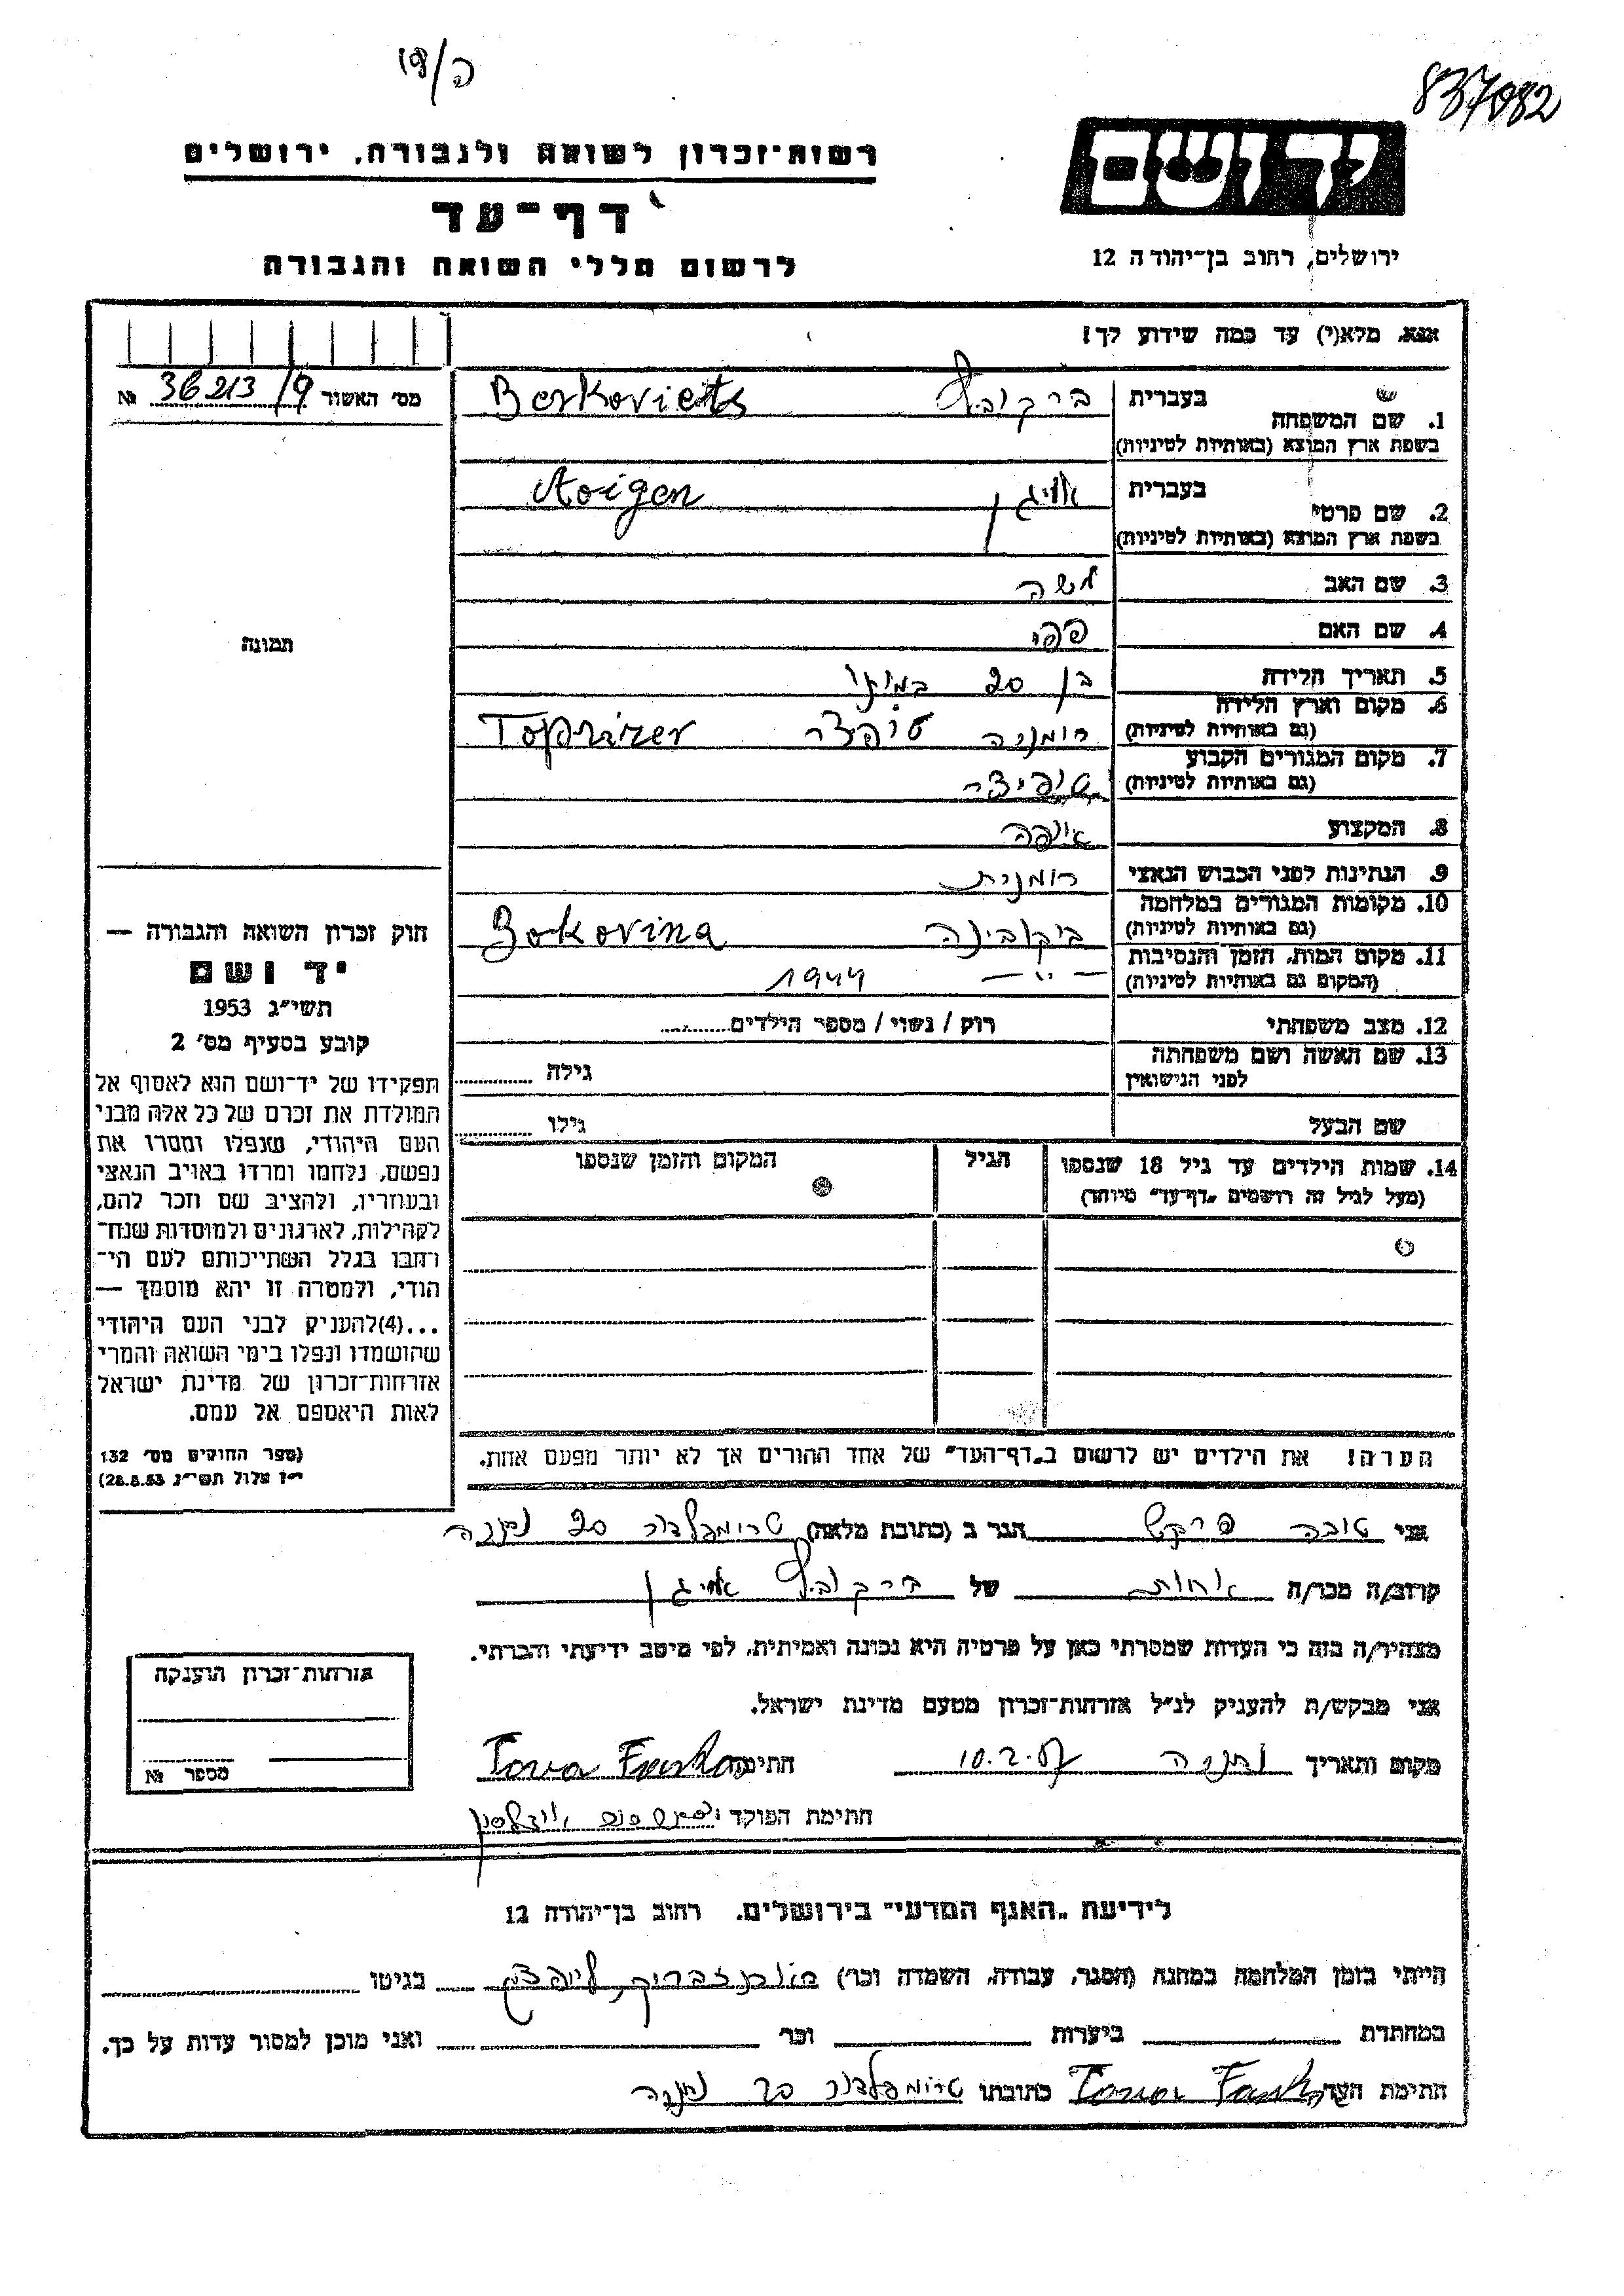 ה/19
837082
רשות־זכרון לשואה ולגבורה, ירושלים
דף־עד
לרשום חללי השואה והגבורה
יד ושם
ירושלים, רחוב בן־יהודה 12
אנא, מלא(י) עד כמה שידוע לך!
מס׳ האשור 36213/9 №
1. שם המשפחה
בעברית ברקוביץ Berkovicts
בשפת ארץ המוצא (באותיות לטיניות)
2. שם פרטי
בעברית Aoigen
בשפת ארץ המוצא (באותיות לטיניות)
3. שם האב משה
4. שם האם פפי
5. תאריך הלידה בן 20 במותו
6. מקום וארץ הלידה רומניה
(גם באותיות לטיניות)
7. מקום המגורים הקבוע
(גם באותיות לטיניות)
8. המקצוע אופה
9. הנתינות לפני הכבוש הנאצי רומנית
10. מקומות המגורים במלחמה בוקובינה Bokovina
(גם באותיות לטיניות)
11. מקום המות, הזמן והנסיבות — ״ — 1944
(המקום גם באותיות לטיניות)
12. מצב משפחתי רוק / נשוי / מספר הילדים
13. שם האשה ושם משפחתה
לפני הנישואין גילה
שם הבעל גילו
14. שמות הילדים עד גיל 18 שנספו הגיל המקום והזמן שנספו
(מעל לגיל זה רושמים „דף־עד״ מיוחד)
הערה! את הילדים יש לרשום ב„דף־העד״ של אחד ההורים אך לא יותר מפעם אחת.
תמונה
חוק זכרון השואה והגבורה —
יד ושם
תשי״ג 1953
קובע בסעיף מס׳ 2
תפקידו של יד־ושם הוא לאסוף אל
המולדת את זכרם של כל אלה מבני
העם היהודי, שנפלו ומסרו את
נפשם, נלחמו ומרדו באויב הנאצי
ובעוזריו, ולהציב שם וזכר להם,
לקהילות, לארגונים ולמוסדות שנח־
רחבו בגלל השתייכותם לעם הי־
הודי, ולמטרה זו יהא מוסמך —
...(4)להעניק לבני העם היהודי
שהושמדו ונפלו בימי השואה והמרי
אזרחות־זכרון של מדינת ישראל
לאות היאספם אל עמם.
(ספר החוקים מס׳ 132
י״ז אלול תשי״ג 28.8.53)
אני טובה פרקש הגר ב (כתובת מלאה) טרומפלדור 20 נתניה
קרוב/ה מכר/ה אחות של ברקוביץ
מצהיר/ה בזה כי העדות שמסרתי כאן על פרטיה היא נכונה ואמיתית, לפי מיטב ידיעתי והכרתי.
אני מבקש/ת להעניק לנ״ל אזרחות־זכרון מטעם מדינת ישראל.
מקום ותאריך נתניה 10.2.57 חתימה Towa Farkas
חתימת הפוקד
אזרחות־זכרון הוענקה
מספר №
לידיעת „האגף המדעי״ בירושלים. רחוב בן־יהודה 12
הייתי בזמן המלחמה במחנה (הסגר, עבודה, השמדה וכו׳) בגיטו
במחתרת ביערות וכו׳ ואני מוכן למסור עדות על כך.
חתימת העד Towa Farkas כתובתו טרומפלדור 20 נתניה